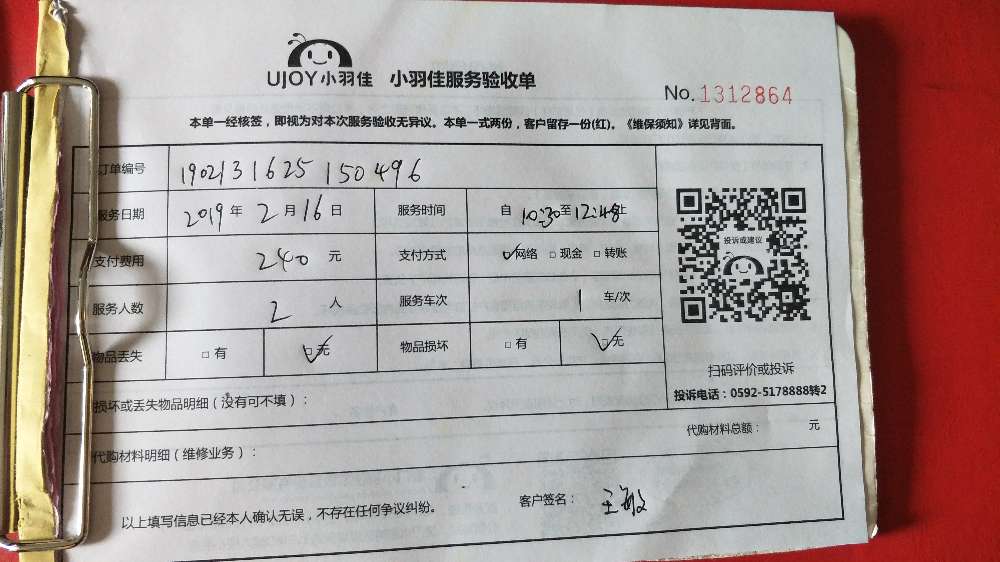 UJOY小羽佳 小羽佳服务验收单
No.1312864
本单一经核签，即视为对本次服务验收无异议。本单一式两份，客户留存一份(红)。《维保须知》详见背面。
订单编号 190213162515 0496
服务日期 2019年2月16日 服务时间 自10:30至12:48止
支付费用 240元 支付方式 ☑网络 □现金 □转账
服务人数 2人 服务车次 1车/次
物品丢失 □有 ☑无 物品损坏 □有 ☑无
投诉或建议
扫码评价或投诉
投诉电话：0592-5178888转2
损坏或丢失物品明细（没有可不填）：
代购材料明细（维修业务）： 代购材料总额： 元
以上填写信息已经本人确认无误，不存在任何争议纠纷。 客户签名： 王敏